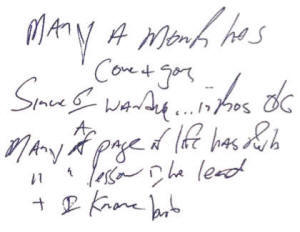 MANY A Month has
Come + gon
Since I wandre... in thos ds
MANY A page of life has
" " lesson I he lead
+ I Know